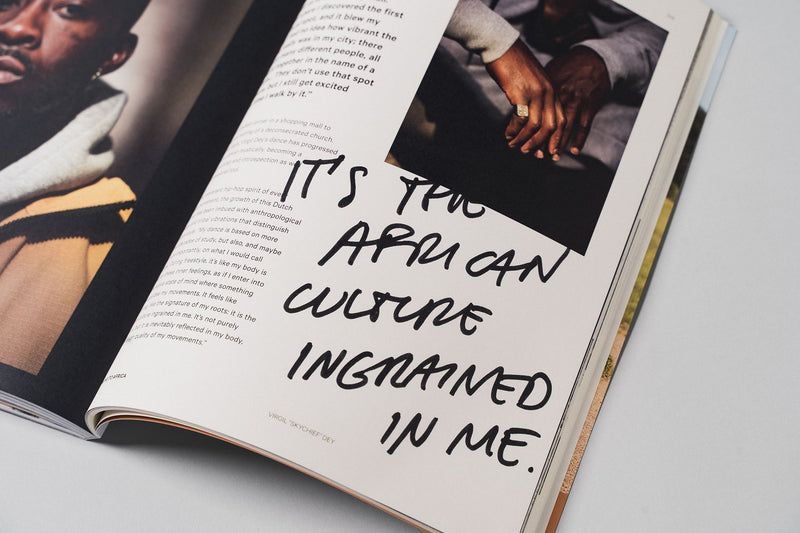 I discovered the first
and it blew my
idea how vibrant the
was in my city; there
different people, all
together in the name of a
They don't use that spot
but I still get excited
I walk by it."
in a shopping mall to
of a deconsecrated church.
Dey's dance has progressed
becoming a
and introspection as
hip-hop spirit of
the growth of this Dutch
been imbued with anthropological
vibrations that distinguish
dance is based on more
of study, but also, and maybe
on what I would call
freestyle, it's like my body is
inner feelings, as if I enter into
of mind where something
my movements. It feels like
the signature of my roots: it is the
ingrained in me. It's not purely
it is inevitably reflected in my body,
quality of my movements."
IT'S THE
AFRICAN
CULTURE
INGRAINED
IN ME.
VIRGIL "SKYCHIEF" DEY
AFRICA